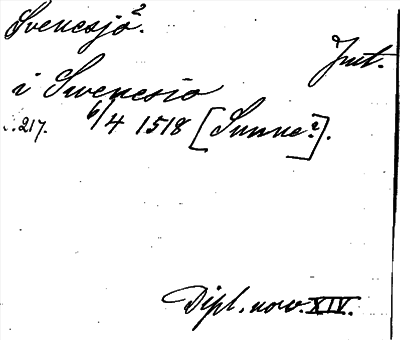 Svenesjö².
Jmt.
i Swenesio
..217. 6/4 1518 [Sunne?].
Dipl. norv. XIV.